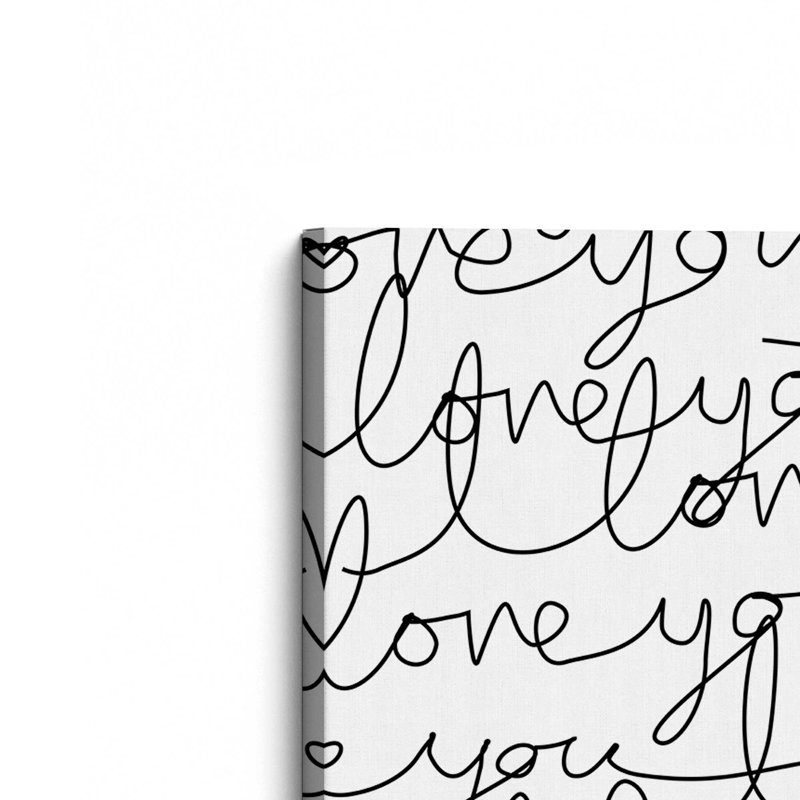 love you
love yo
lov
love yo
e you